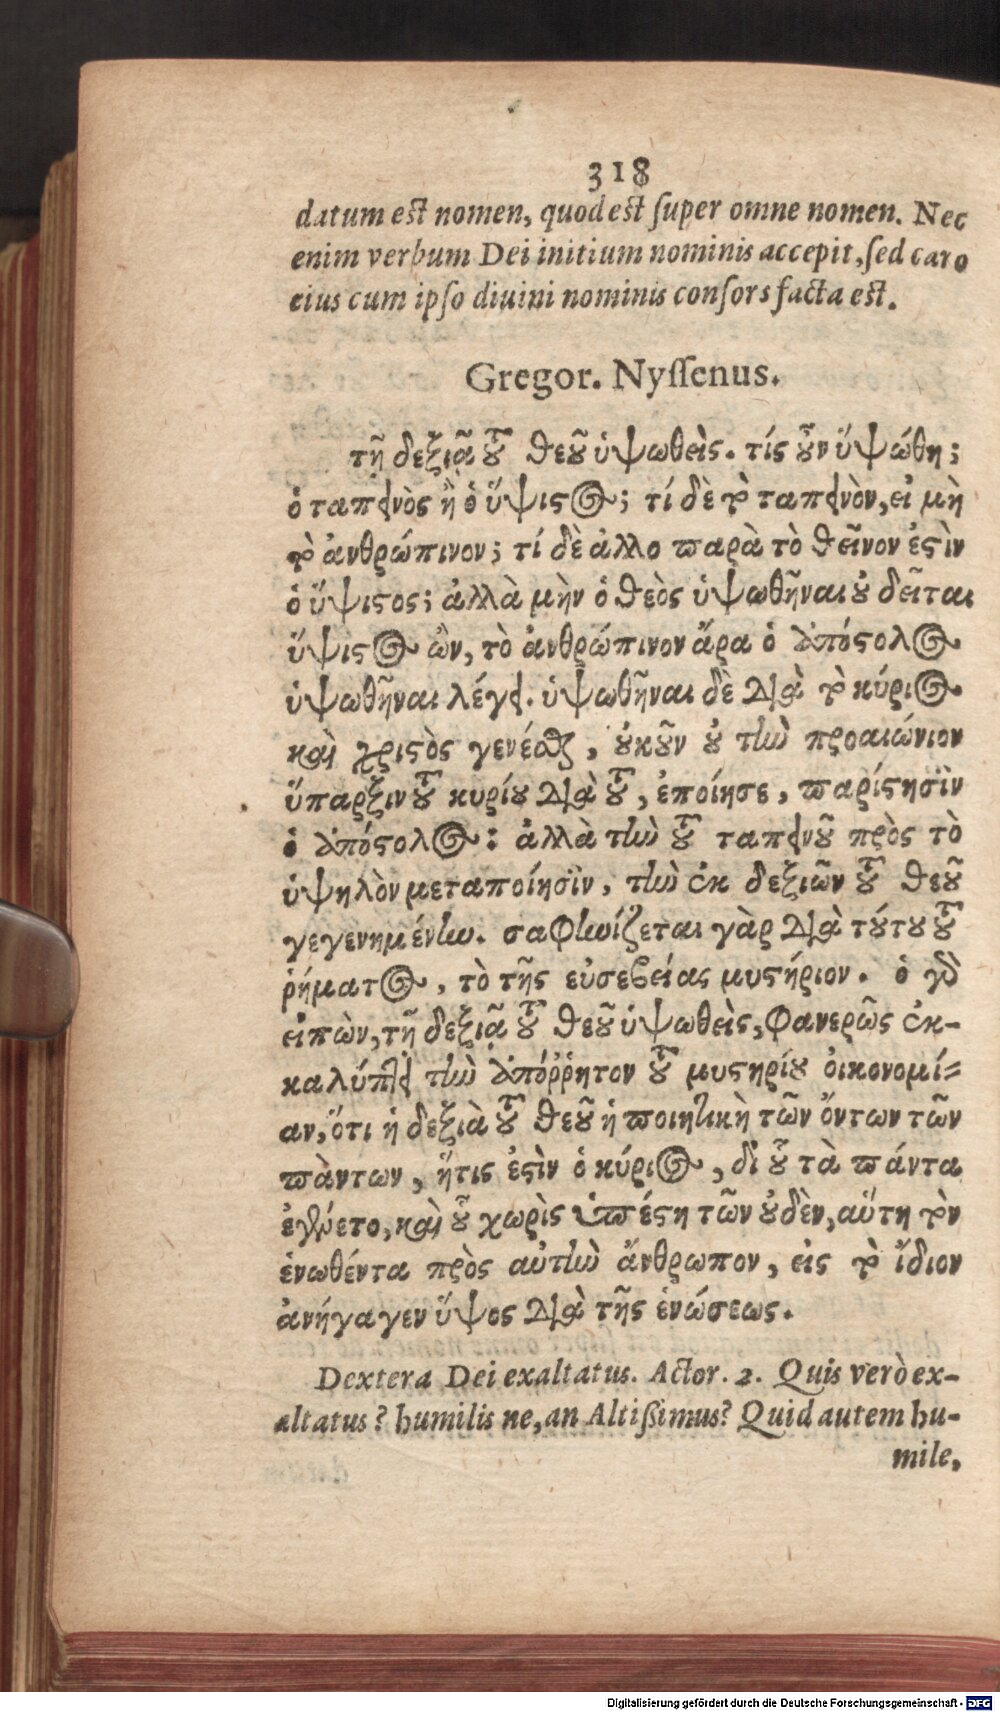 318
datum est nomen, quod est ſuper omne nomen. Nec
enim verbum Dei initium nominis accepit, ſed caro
eius cum ipſo diuini nominis conſors facta est.
Gregor. Nyſſenus.
τῇ δεξιᾷ τοῦ θεοῦ ὑψωθεὶς. τίς οὖν ὕψώθη;
ὁ ταπεινὸς ἢ ὁ ὕψιστος; τί δὲ τὸ ταπεινὸν, εἰ μὴ
τὸ ἀνθρώπινον; τί δὲ ἄλλο παρὰ τὸ θεῖνον ἐστὶν
ὁ ὕψιστος; ἀλλὰ μὴν ὁ θεὸς ὑψωθῆναι οὐ δεῖται
ὕψιστος ὢν, τὸ ἀνθρώπινον ἄρα ὁ ἀπόστολος
ὑψωθῆναι λέγει. ὑψωθῆναι δὲ διὰ τὸ κύριος
καὶ χριστὸς γενέσθαι, οὐκοῦν οὐ τὴν προαιώνιον
ὕπαρξιν τοῦ κυρίου διὰ τοῦ, ἐποίησε, παρίστησὶν
ὁ ἀπόστολος: ἀλλὰ τὴν τοῦ ταπεινοῦ πρὸς τὸ
ὑψηλὸν μεταποίησὶν, τὴν ἐκ δεξιῶν τοῦ θεοῦ
γεγενημένην. σαφηνίζεται γὰρ διὰ τούτου τοῦ
ῥήματος, τὸ τῆς εὐσεβείας μυστήριον. ὁ γὰρ
εἰπὼν, τῇ δεξιᾷ τοῦ θεοῦ ὑψωθεὶς, φανερῶς ἐκ-
καλύπτει τὴν ἀπόῤῥητον τοῦ μυστηρίου οἰκονομί-
αν, ὅτι ἡ δεξιὰ τοῦ θεοῦ ἡ ποιητικὴ τῶν ὄντων τῶν
πὰντων, ἥτις ἐστὶν ὁ κύριος, δι οὗ τὰ πάντα
ἐγένετο, καὶ οὗ χωρὶς ὑπέστη τῶν οὐδὲν, αὕτη τὸν
ἑνωθέντα πρὸς αὐτὴν ἄνθρωπον, εἰς τὸ ἴδιον
ἀνήγαγεν ὕψος διὰ τῆς ἑνώσεως.
Dextera Dei exaltatus. Actor. 2. Quis verò ex-
altatus? humilis ne, an Altiſſimus? Quid autem hu-
mile,
Digitalisierung gefördert durch die Deutsche Forschungsgemeinschaft - DFG